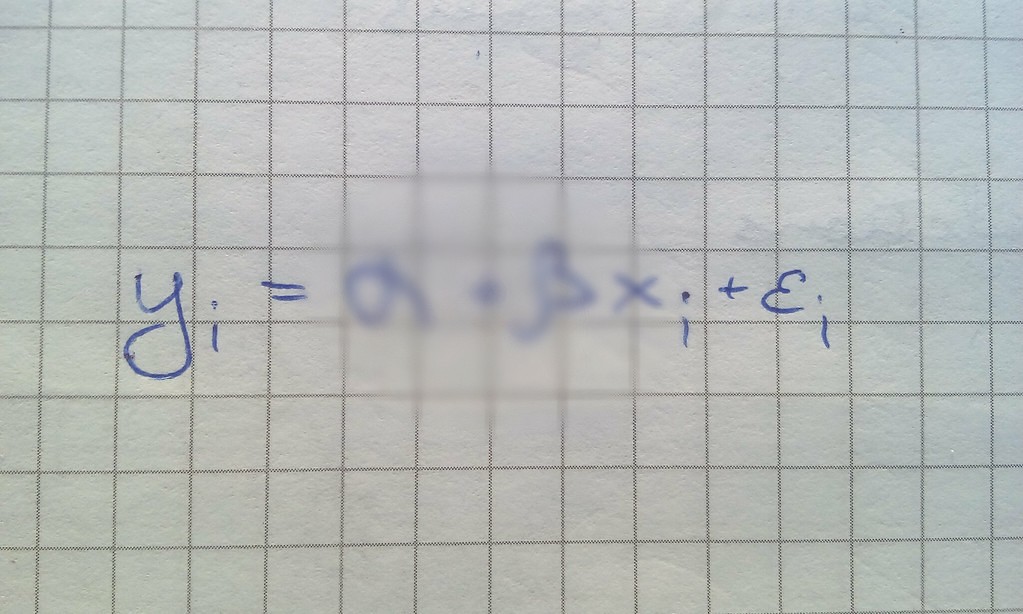 yᵢ = α + βxᵢ + εᵢ